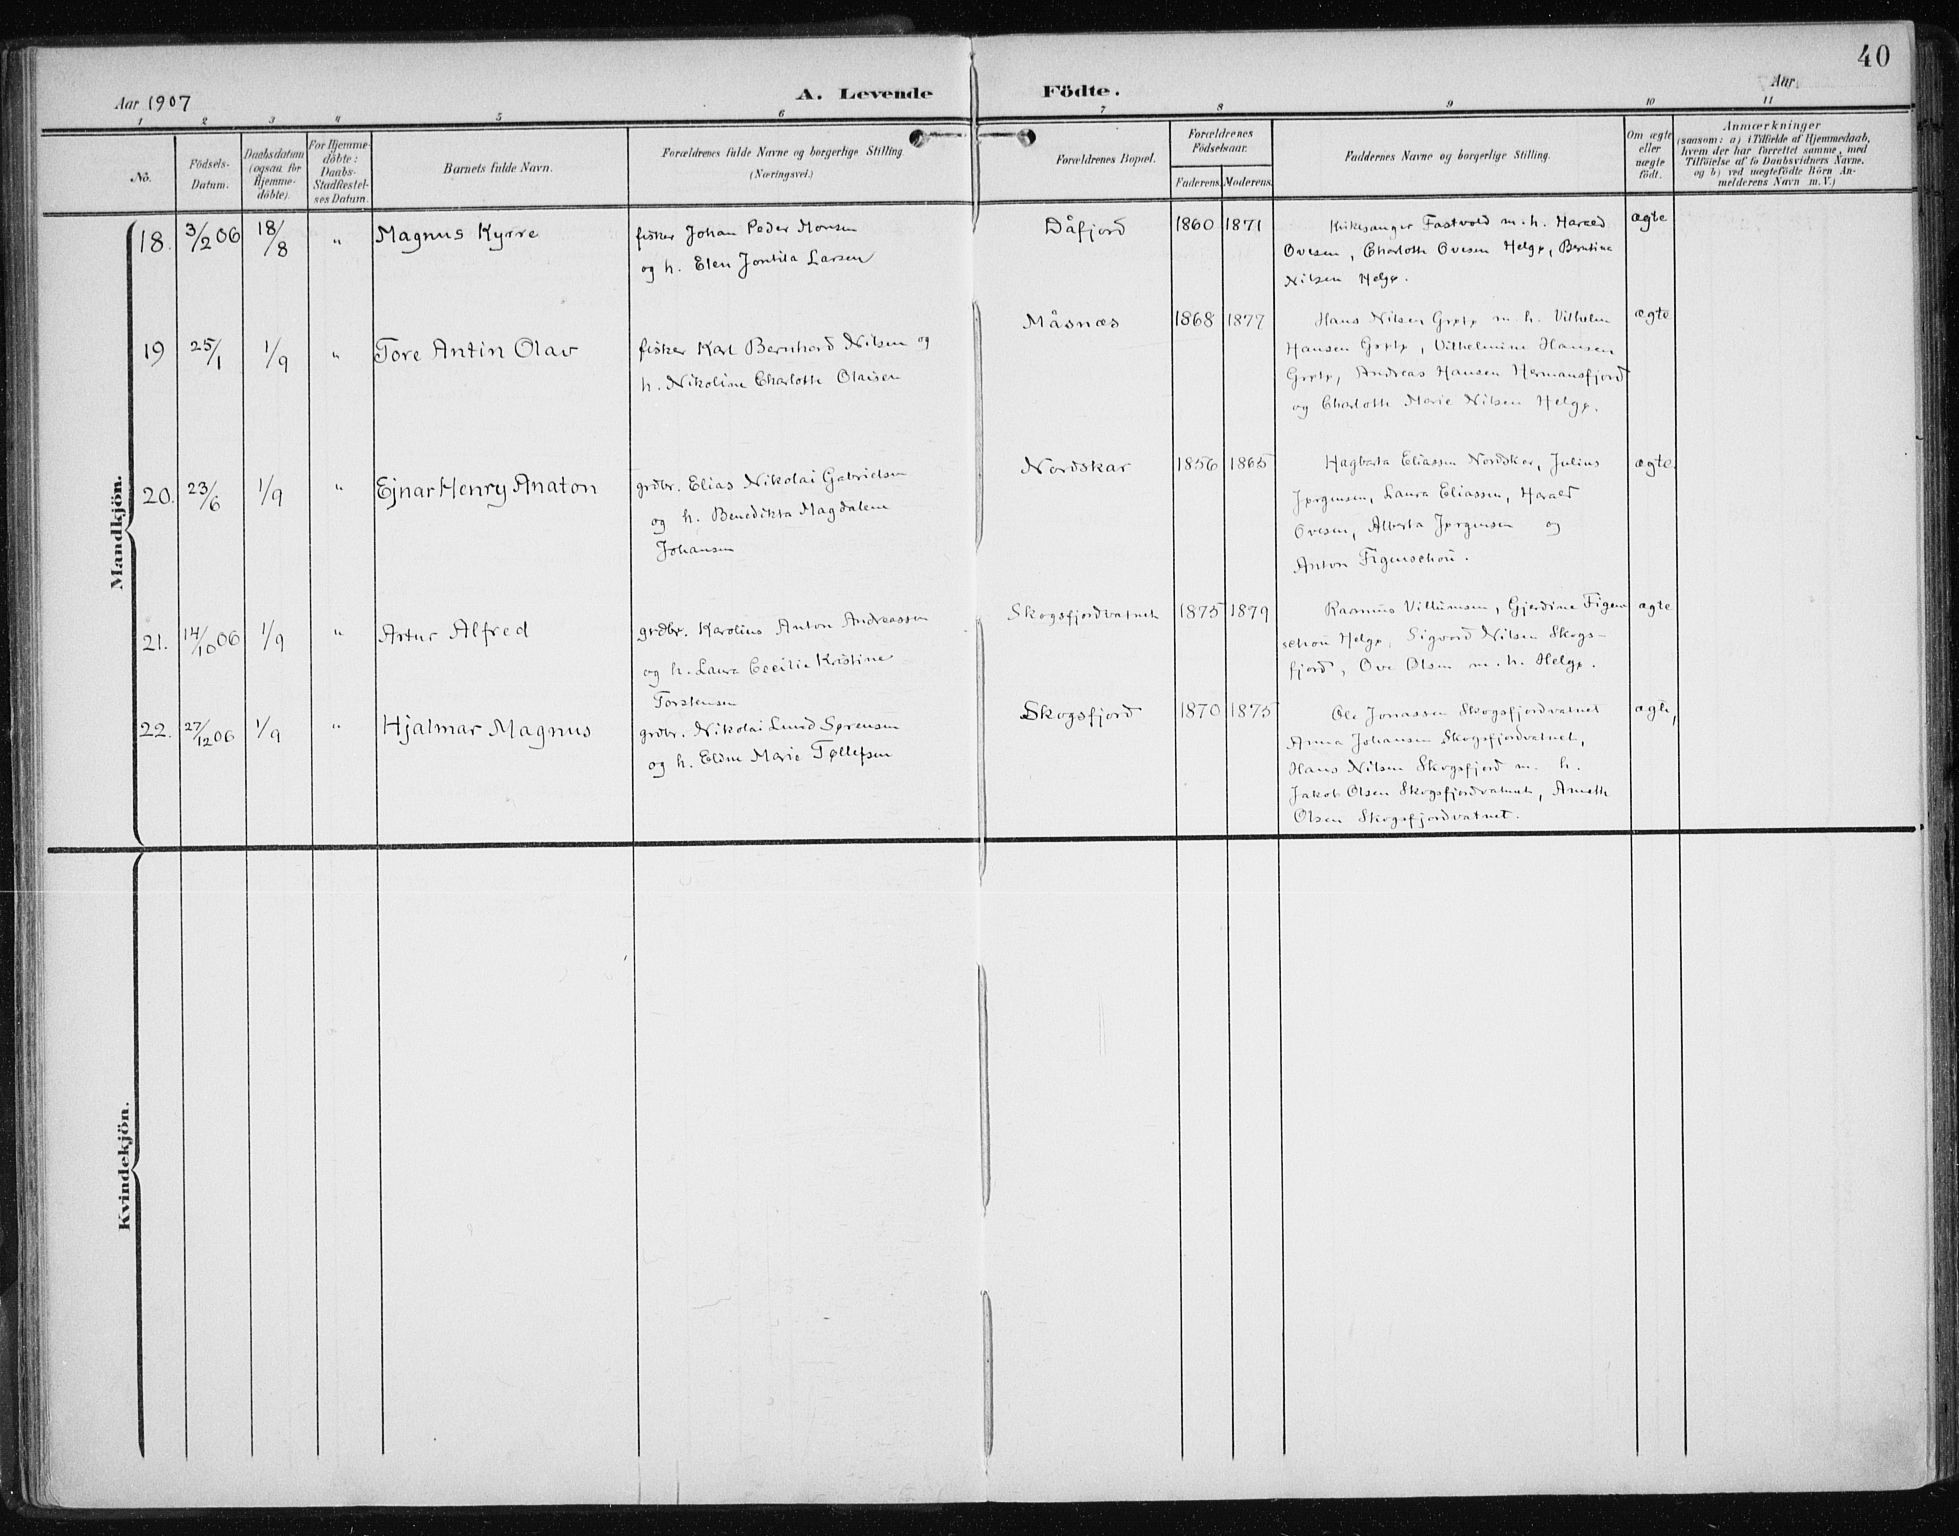 40
Aar 1907
A. Levende Födte.
Aar
1 2 3 4 5 6 7 8 9 10 11
No.
Födsels-
Datum.
Daabsdatum
(ogsaa for
Hjemme-
döbte).
For Hjemme-
döbte:
Daabs-
Stadfæstel-
ses Datum.
Barnets fulde Navn.
Forældrenes fulde Navne og borgerlige Stilling.
(Næringsvei.)
Forældrenes Bopæl.
Forældrenes
Födselsaar.
Faderens. Moderens.
Faddernes Navne og borgerlige Stilling.
Om ægte
eller
uægte
födt.
Anmærkninger
(saasom: a) i Tilfælde af Hjemmedaab,
hvem der har forrettet samme, med
Tilföielse af to Daabsvidners Navne,
og b) ved uægtefödte Börn An-
melderens Navn m. V.)
Mandkjön.
18. 3/2 06 18/8 " Magnus Kyrre
fisker Johan Peder Monsen
og h. Elen Jontila Larsen
Dåfjord 1860 1871
Kirkesanger Fastvold m. h. Harald
Ovesen, Charlotte Ovesen Helgø, Berntine
Nilsen Helgø.
ægte
19 25/1 1/9 " Tore Antin Olav
fisker Karl Bernhard Nilsen og
h. Nikoline Charlotte Olaisen
Måsnæs 1868 1877
Hans Nilsen Grøtø m. h. Vilhelm
Hansen Grøtø, Vilhelmine Hansen
Grøtø, Andreas Hansen Hermansfjord
og Charlotte Marie Nilsen Helgø.
ægte
20. 23/6 1/9 " Ejnar Henry Anaton
grdbr. Elias Nikolai Gabrielsen
og h. Benedikta Magdalene
Johansen
Nordskar 1856 1865
Hagbarta Eliassen Nordskar, Julius
Jørgensen, Laura Eliassen, Harald
Ovesen, Alberta Jørgensen og
Anton Figenschou.
ægte.
21. 14/10 06 1/9 " Artur Alfred
grdbr. Karolius Anton Andreassen
og h. Laura Cecilie Kristine
Torstensen
Skogsfjordvatnet 1875 1879
Rasmus Villumsen, Gjerdine Figen
schou Helgø, Sigvard Nilsen Skogs-
fjord, Ove Olsen m. h. Helgø.
ægte
22. 27/12 06 1/9 " Hjalmar Magnus
grdbr. Nikolai Lund Sørensen
og h. Eline Marie Tøllefsen
Skogsfjord 1870 1875
Ole Jonassen Skogsfjordvatnet
Anna Johansen Skogsfjordvatnet,
Hans Nilsen Skogsfjord m. h.
Jakob Olsen Skogsfjordvatnet, Anette
Olsen Skogsfjordvatnet.
ægte,
Kvindekjön.